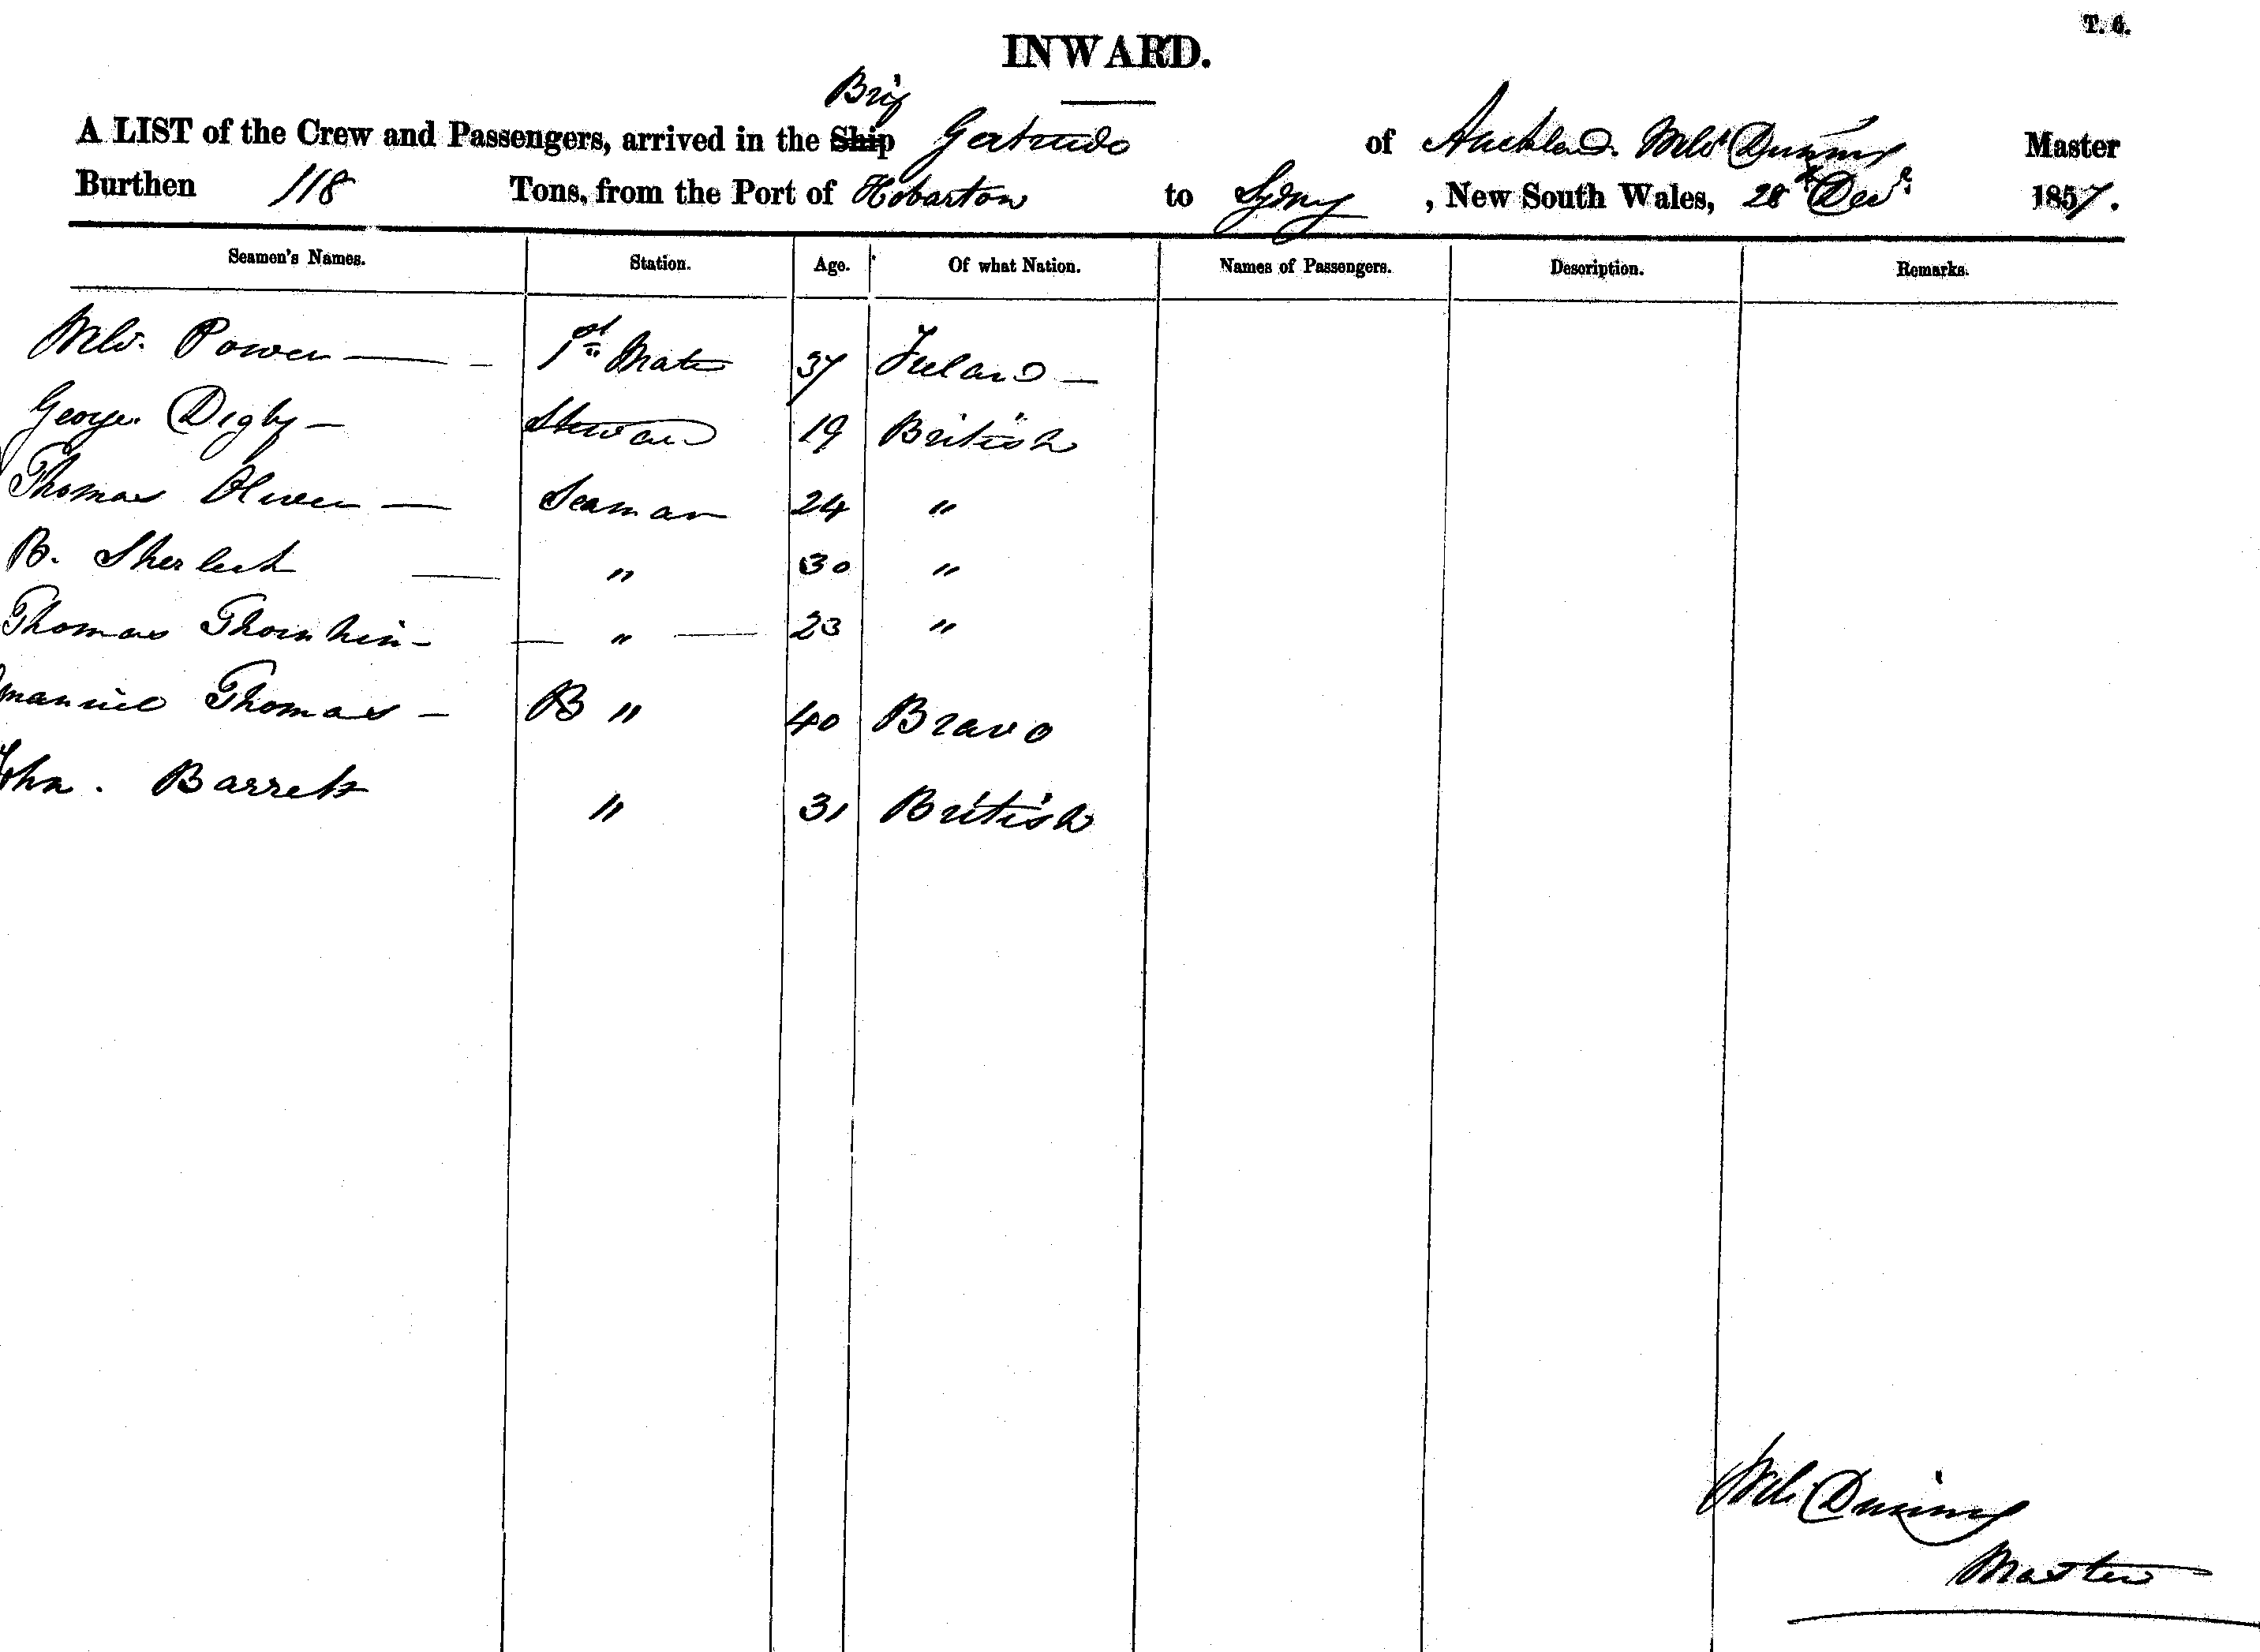 T. 6.
INWARD.
Brig
A LIST of the Crew and Passengers, arrived in the Ship Gertrude of Auckland. Wm Dunning Master
Burthen 118 Tons, from the Port of Hobarton to Sydney, New South Wales, 28th Decr 1857.
Seamen's Names. Station. Age. Of what Nation. Names of Passengers. Description. Remarks.
Wm. Power 1st Mate 37 Ireland
George Digby Steward 19 British
Thomas Oliver Seaman 24 "
B. " 30 "
Thomas " 23 "
manuel Thomas B " 40 Bravo
John. Barrett " 31 British
Wm. Dunning
Master